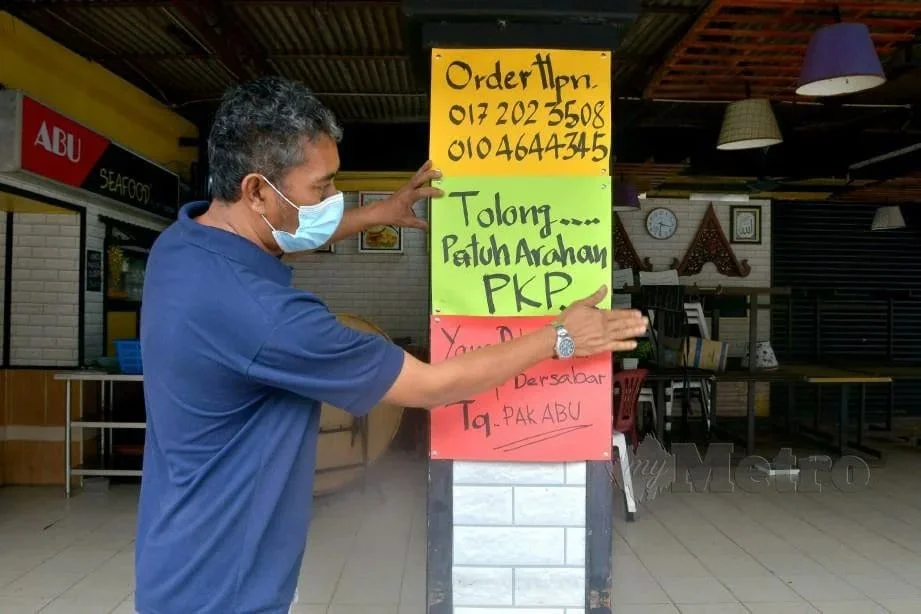 ABU
SEAFOOD
Order Hpn.
017 202 3508
010 4644345
Tolong.....
Patuh Arahan
PKP.
Bersabar
Tq.. PAK ABU
my Metro